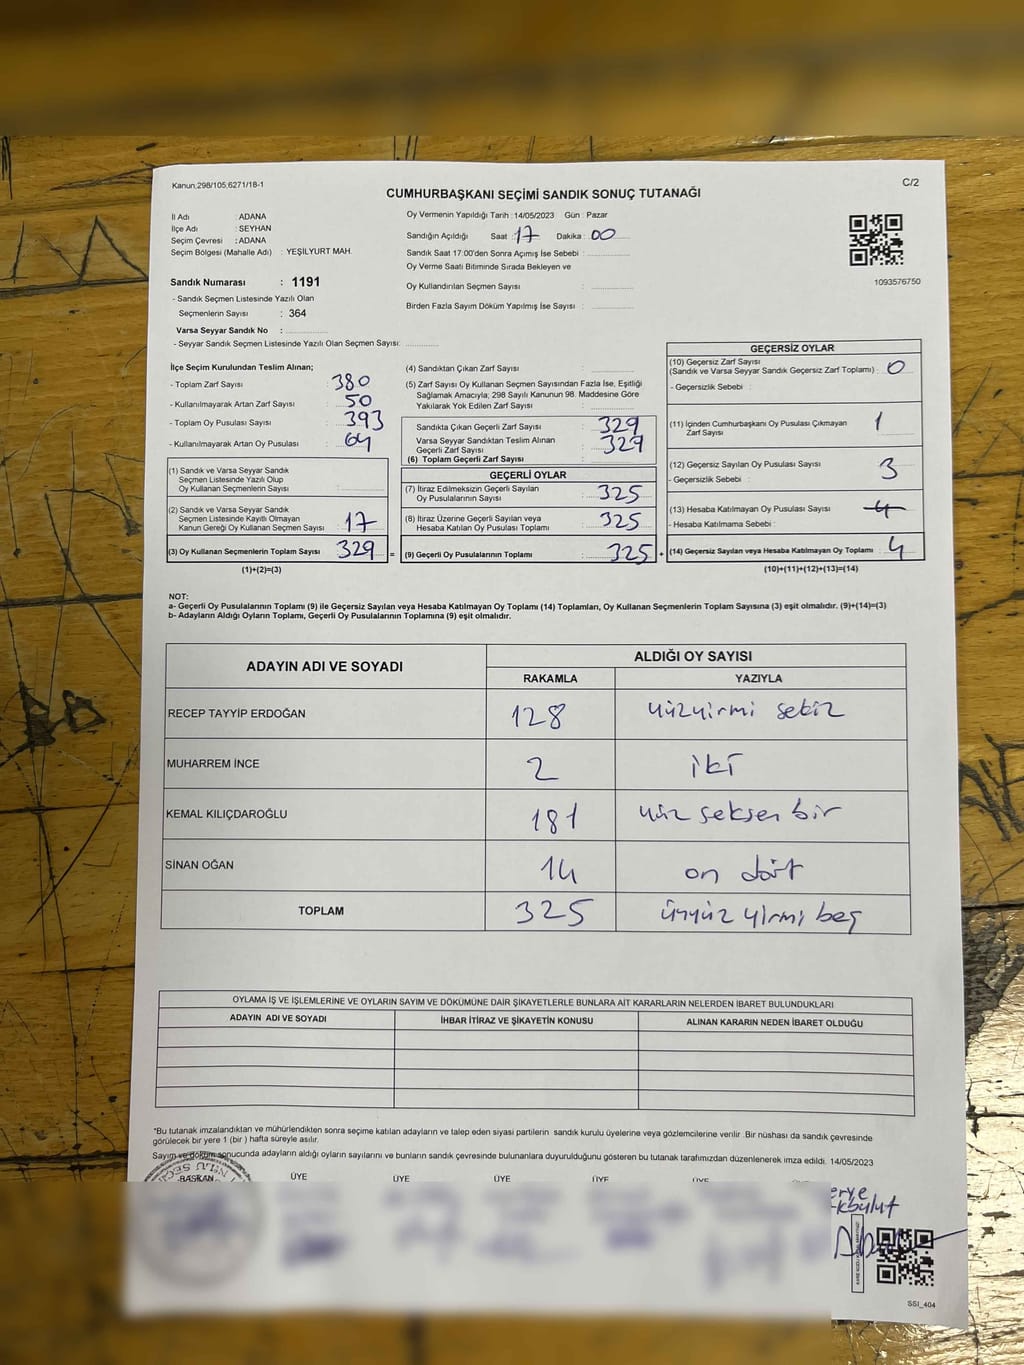 Kanun,298/105,6271/18-1
C/2
CUMHURBAŞKANI SEÇİMİ SANDIK SONUÇ TUTANAĞI
İl Adı : ADANA
İlçe Adı : SEYHAN
Seçim Çevresi : ADANA
Seçim Bölgesi (Mahalle Adı) : YEŞİLYURT MAH.
Sandık Numarası : 1191
- Sandık Seçmen Listesinde Yazılı Olan
Seçmenlerin Sayısı : 364
Varsa Seyyar Sandık No :
- Seyyar Sandık Seçmen Listesinde Yazılı Olan Seçmen Sayısı:
Oy Vermenin Yapıldığı Tarih : 14/05/2023 Gün : Pazar
Sandığın Açıldığı Saat : 17 Dakika : 00
Sandık Saat 17:00'den Sonra Açımış İse Sebebi :
Oy Verme Saati Bitiminde Sırada Bekleyen ve
Oy Kullandırılan Seçmen Sayısı :
Birden Fazla Sayım Döküm Yapılmış İse Sayısı :
1093576750
İlçe Seçim Kurulundan Teslim Alınan;
- Toplam Zarf Sayısı : 380
- Kullanılmayarak Artan Zarf Sayısı : 50
- Toplam Oy Pusulası Sayısı : 393
- Kullanılmayarak Artan Oy Pusulası : 64
(1) Sandık ve Varsa Seyyar Sandık
Seçmen Listesinde Yazılı Olup
Oy Kullanan Seçmenlerin Sayısı :
(2) Sandık ve Varsa Seyyar Sandık
Seçmen Listesinde Kayıtlı Olmayan
Kanun Gereği Oy Kullanan Seçmen Sayısı : 17
(3) Oy Kullanan Seçmenlerin Toplam Sayısı 329 =
(1)+(2)=(3)
(4) Sandıktan Çıkan Zarf Sayısı :
(5) Zarf Sayısı Oy Kullanan Seçmen Sayısından Fazla İse, Eşitliği
Sağlamak Amacıyla; 298 Sayılı Kanunun 98. Maddesine Göre
Yakılarak Yok Edilen Zarf Sayısı :
Sandıkta Çıkan Geçerli Zarf Sayısı : 329
Varsa Seyyar Sandıktan Teslim Alınan
Geçerli Zarf Sayısı : 329
(6) Toplam Geçerli Zarf Sayısı :
GEÇERLİ OYLAR
(7) İtiraz Edilmeksizin Geçerli Sayılan
Oy Pusulalarının Sayısı : 325
(8) İtiraz Üzerine Geçerli Sayılan veya
Hesaba Katılan Oy Pusulası Toplamı : 325
(9) Geçerli Oy Pusulalarının Toplamı : 325 +
GEÇERSİZ OYLAR
(10) Geçersiz Zarf Sayısı
(Sandık ve Varsa Seyyar Sandık Geçersiz Zarf Toplamı) : 0
- Geçersizlik Sebebi :
(11) İçinden Cumhurbaşkanı Oy Pusulası Çıkmayan
Zarf Sayısı : 1
(12) Geçersiz Sayılan Oy Pusulası Sayısı : 3
- Geçersizlik Sebebi :
(13) Hesaba Katılmayan Oy Pusulası Sayısı : 4
- Hesaba Katılmama Sebebi :
(14) Geçersiz Sayılan veya Hesaba Katılmayan Oy Toplamı : 4
(10)+(11)+(12)+(13)=(14)
NOT:
a- Geçerli Oy Pusulalarının Toplamı (9) ile Geçersiz Sayılan veya Hesaba Katılmayan Oy Toplamı (14) Toplamları, Oy Kullanan Seçmenlerin Toplam Sayısına (3) eşit olmalıdır. (9)+(14)=(3)
b- Adayların Aldığı Oyların Toplamı, Geçerli Oy Pusulalarının Toplamına (9) eşit olmalıdır.
ADAYIN ADI VE SOYADI ALDIĞI OY SAYISI
RAKAMLA YAZIYLA
RECEP TAYYİP ERDOĞAN 128 yüzyirmi sekiz
MUHARREM İNCE 2 iki
KEMAL KILIÇDAROĞLU 181 yüz seksen bir
SİNAN OĞAN 14 on dört
TOPLAM 325 üçyüz yirmi beş
OYLAMA İŞ VE İŞLEMLERİNE VE OYLARIN SAYIM VE DÖKÜMÜNE DAİR ŞİKAYETLERLE BUNLARA AİT KARARLARIN NELERDEN İBARET BULUNDUKLARI
ADAYIN ADI VE SOYADI İHBAR İTİRAZ VE ŞİKAYETİN KONUSU ALINAN KARARIN NEDEN İBARET OLDUĞU
*Bu tutanak imzalandıktan ve mühürlendikten sonra seçime katılan adayların ve talep eden siyasi partilerin sandık kurulu üyelerine veya gözlemcilerine verilir .Bir nüshası da sandık çevresinde
görülecek bir yere 1 (bir ) hafta süreyle asılır.
Sayım ve döküm sonucunda adayların aldığı oyların sayılarını ve bunların sandık çevresinde bulunanlara duyurulduğunu gösteren bu tutanak tarafımızdan düzenlenerek imza edildi. 14/05/2023
BAŞKAN ÜYE ÜYE ÜYE ÜYE ÜYE
SSI_404